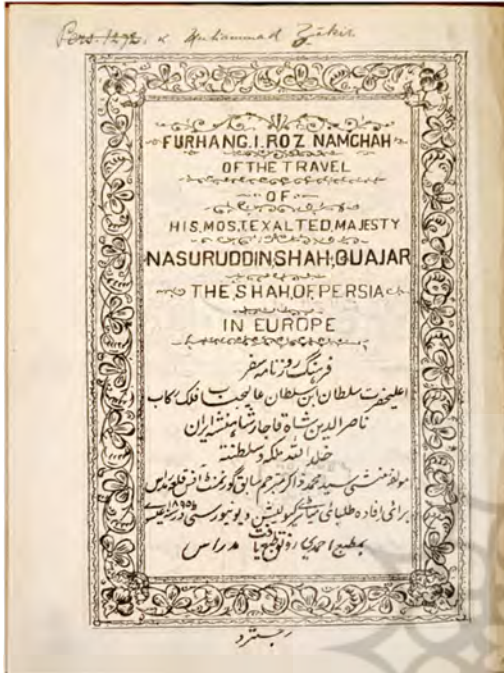 Pers. 1292. Muhammad Zākir
FURHANG.I.ROZ NAMCHAH
OF THE TRAVEL
OF
HIS.MOST.EXALTED.MAJESTY
NASURUDDIN,SHAH,QUAJAR
THE,SHAH,OF,PERSIA
IN EUROPE
فرهنگ روزنامه سفر
اعلیحضرت سلطان ابن سلطان فلک رکاب
ناصر الدین شاه قاجار شاهنشه ایران
خلد الله ملکه و سلطنته
مولفه منشی سید محمد ذاکر مترجم سابق گورنمنٹ آفس قلعه مدراس
برای افاده طلبای میٹریکیولیشن یونیورسٹی در ۱۸۹۵
بمطبع احمدی رونق طبع یافت مدراس
رجسترد